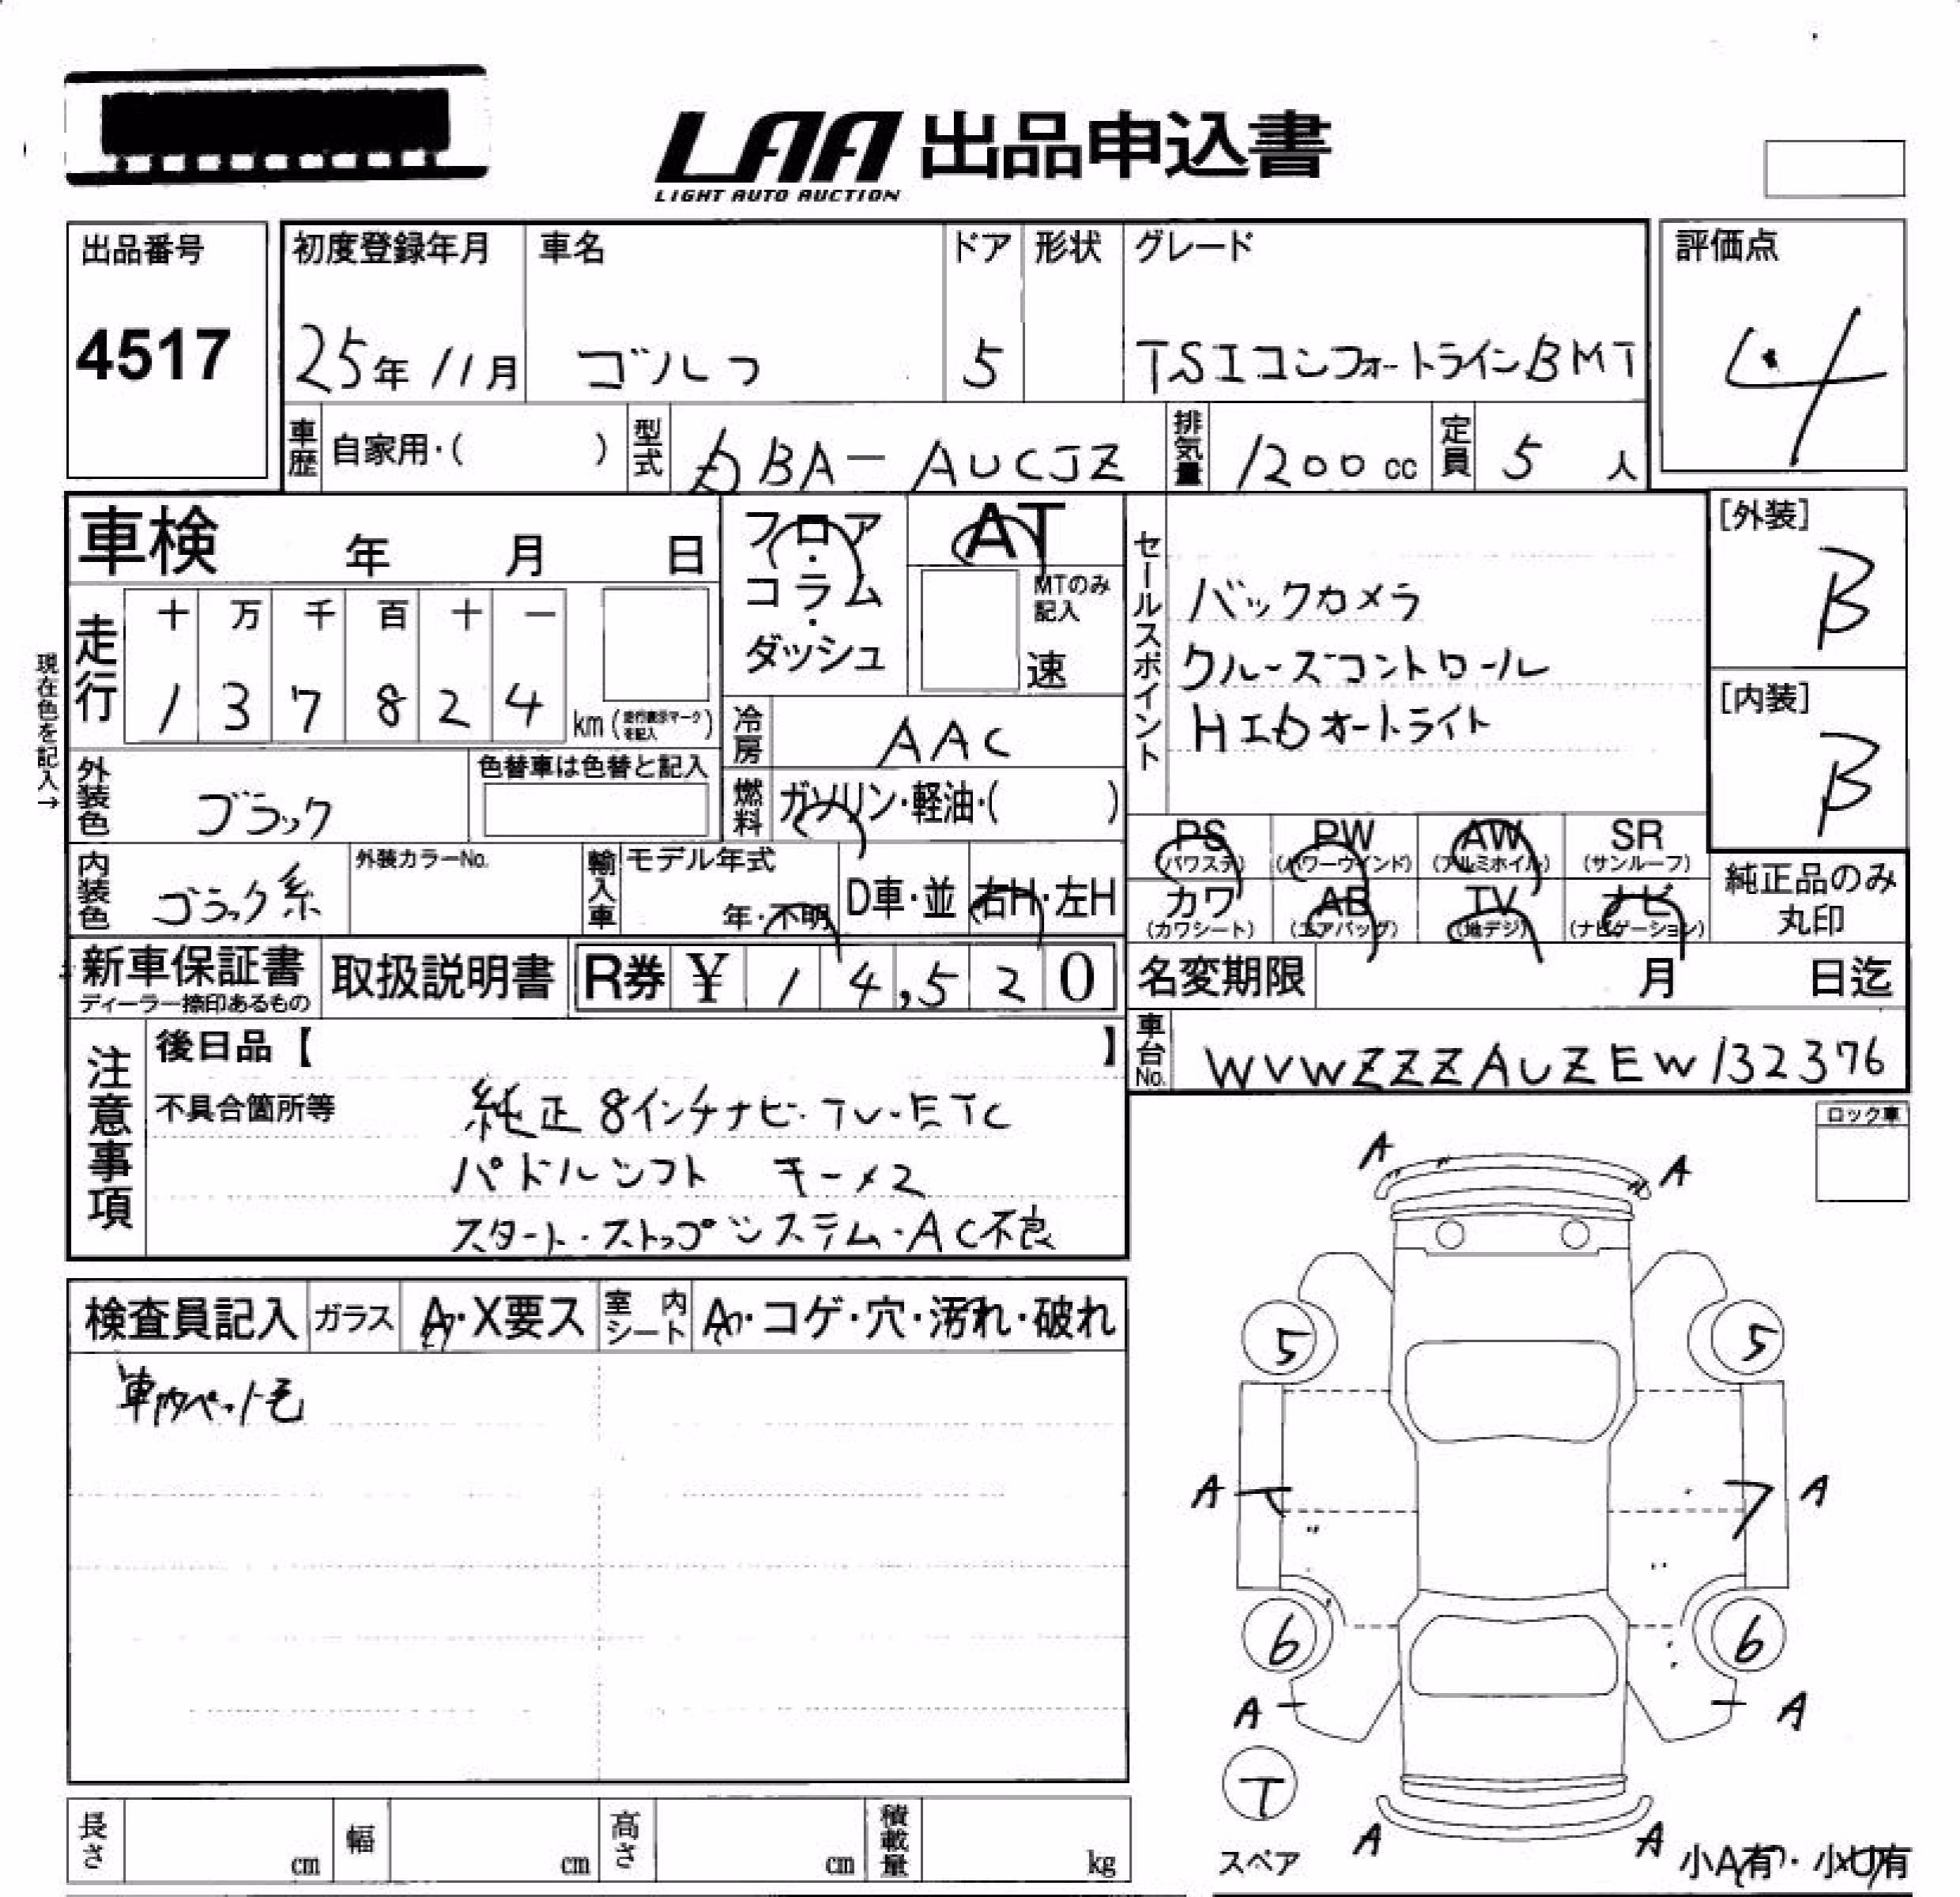 LAA 出品申込書
LIGHT AUTO AUCTION
出品番号
4517
初度登録年月 車名 ドア 形状 グレード
25年11月 ゴルフ 5 TSIコンフォートラインBMT
評価点
4
車歴 自家用・( ) 型式 DBA-AUCJZ 排気量 1200cc 定員 5人
車検 年 月 日
フロア・コラム・ダッシュ
AT
MTのみ記入
速
セールスポイント
バックカメラ
クルーズコントロール
HIDオートライト
[外装]
B
[内装]
B
現在色を記入→
走行 十 万 千 百 十 一
1 3 7 8 2 4 km (走行表示マークを記入)
冷房 AAC
外装色 ブラック 色替車は色替と記入
燃料 ガソリン・軽油・( )
PS (パワステ) PW (パワーウインド) AW (アルミホイル) SR (サンルーフ)
カワ (カワシート) AB (エアバッグ) TV (地デジ) ナビ (ナビゲーション)
純正品のみ丸印
内装色 ブラック系 外装カラーNo. 輸入車 モデル年式 年・不明 D車・並 右H・左H
新車保証書 ディーラー捺印あるもの 取扱説明書 R券 ¥ 1 4,5 2 0
名変期限 月 日迄
車台No. WVWZZZAUZEW132376
注意事項
後日品【 】
不具合箇所等 純正8インチナビ・TV・ETC
パドルシフト キー×2
スタート・ストップシステム・AC不良
ロック車
検査員記入 ガラス A・X要ス 室内シート A・コゲ・穴・汚れ・破れ
車内ペット毛
A A
5 5
A A
6 6
A A
T
スペア
A A
小A有・小U有
長さ cm 幅 cm 高さ cm 積載量 kg